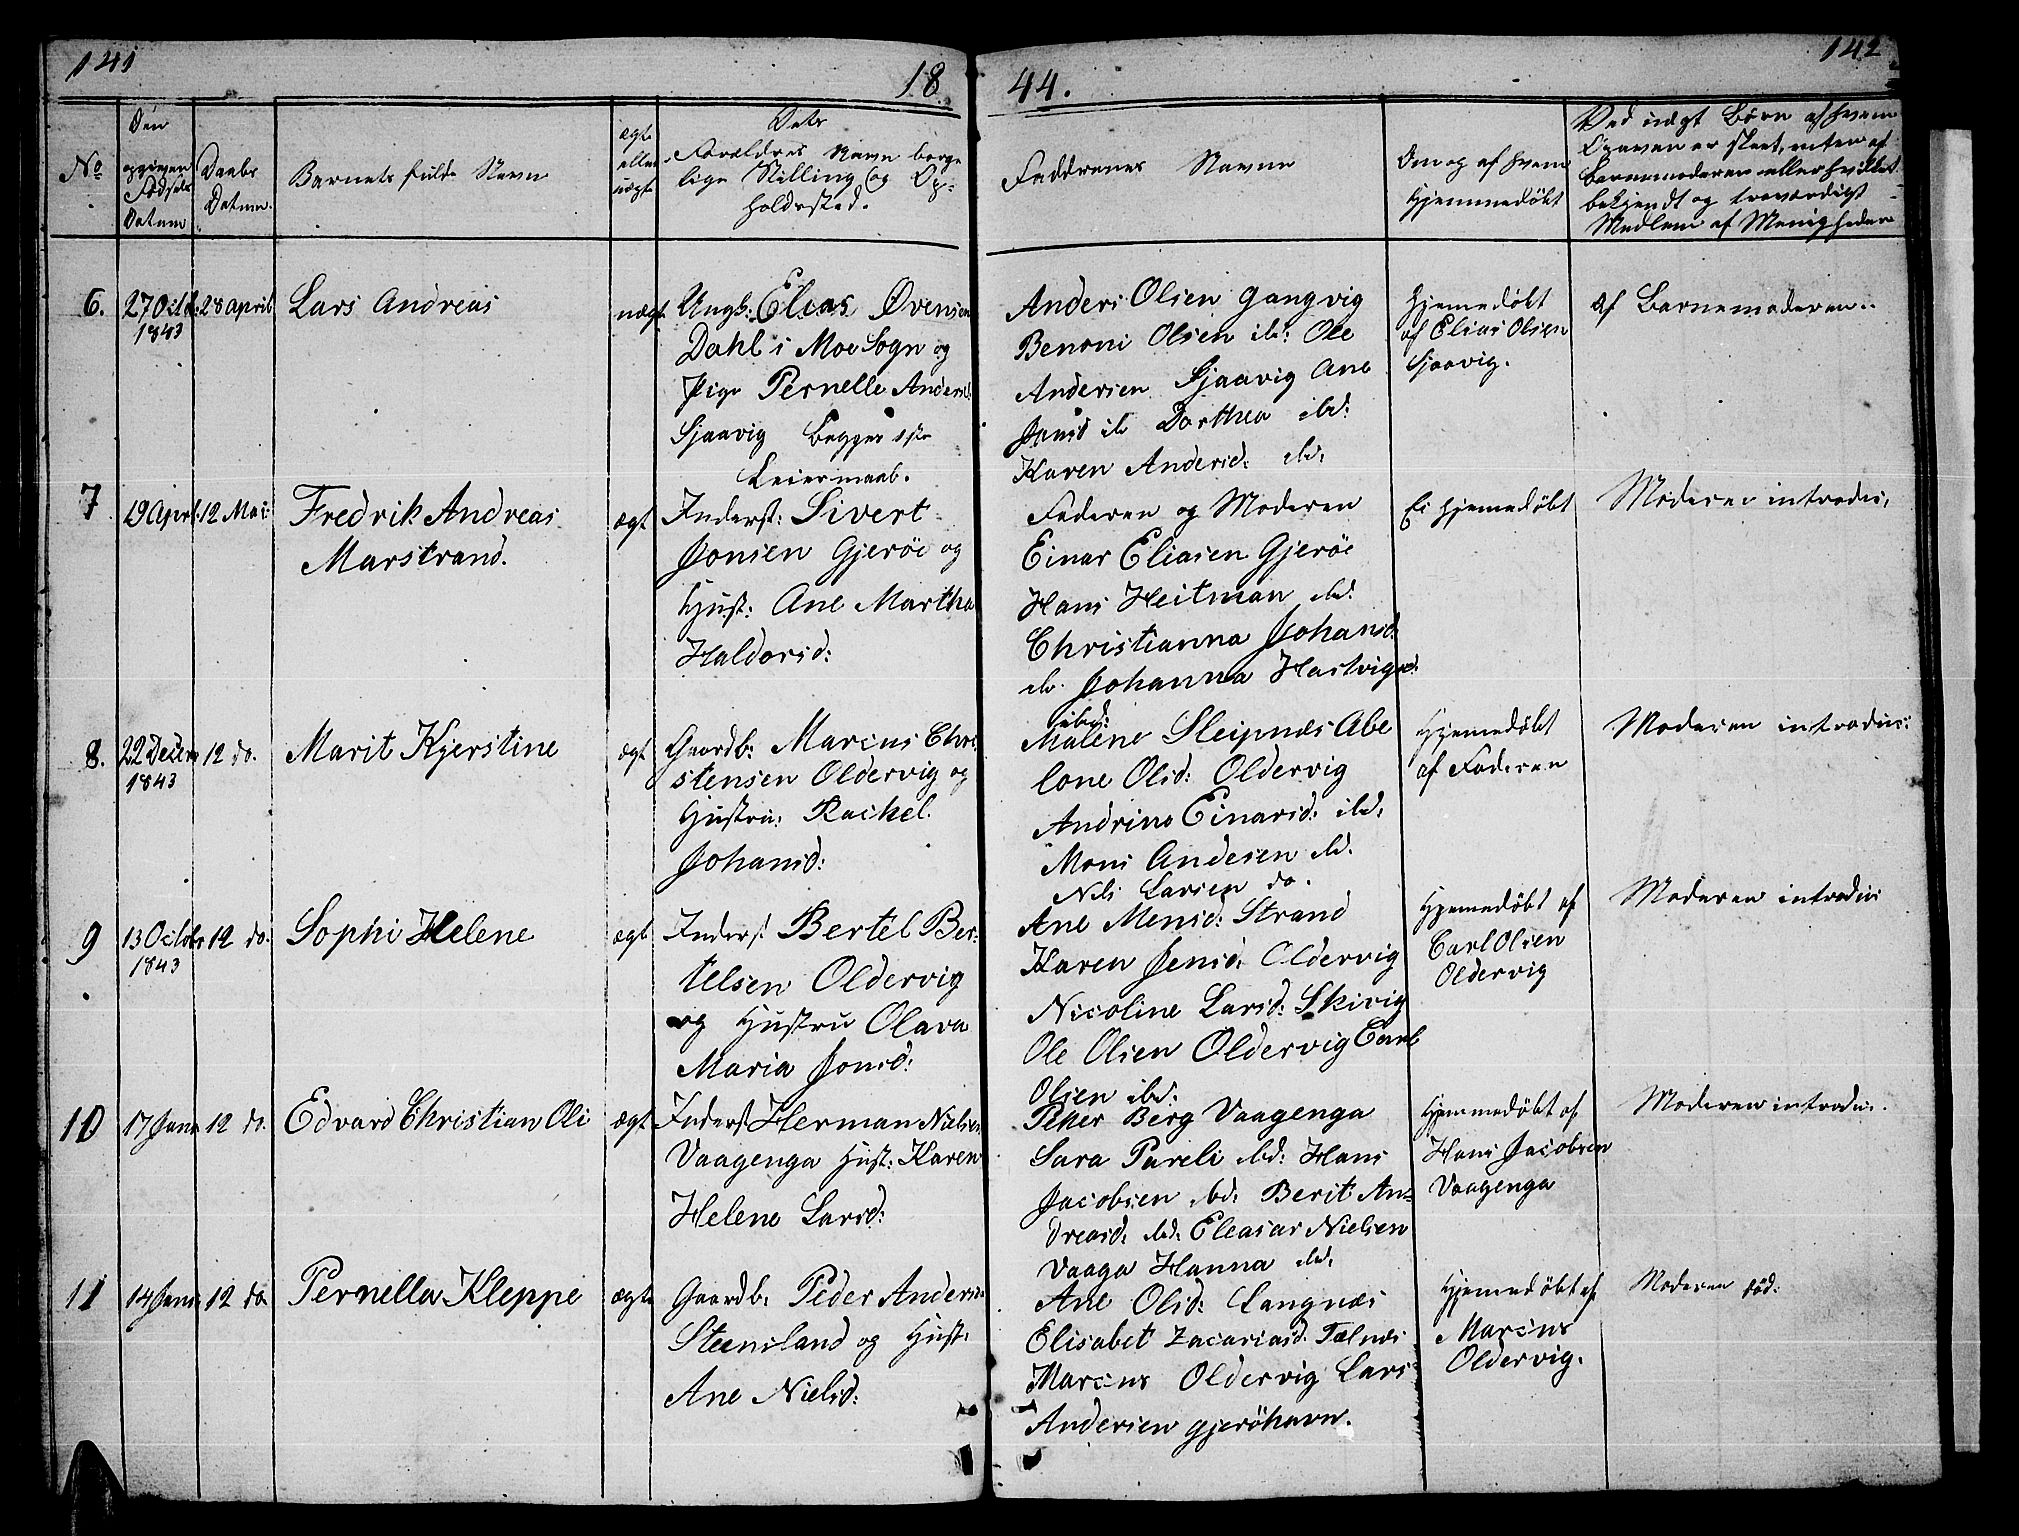 141
18
44.
142
No
Den opgivne Fødsels Datum
Daabs Datum.
Barnets fulde Navn
ægt. eller uægt.
Dets Forældres Navn borgerlige Stilling og Opholdssted.
Faddrenes Navne
Om og af hvem Hjemmedøbt
Ved uægt Børn af hvem Opgaven er skeet, enten af Barnemoderen eller hvilket bekjendt og troværdigt Medlem af Menigheden
6.
27 Octbr
1843
28 April
Lars Andreas
uægt
Ungk: Elias Ovensen
Dahl i Moe Sogn og
Pige Pernelle Andersd:
Sjaavig Begges 1ste
Leiermaal.
Anders Olsen Gangvig
Benoni Olsen ibd: Ole
Andersen Sjaavig Ane
Jonsd ib Dorthea ibd:
Karen Andersd: ibd.
Hjemedøbt
af Elias Olsen
Sjaavig.
af Barnemoderen.
7
19 April
12 Mai
Fredrik Andreas
Marstrand.
ægt
Inderst: Sivert
Jonsen Gjerøe og
Hust: Ane Martha
Haldorsd:
Faderen og Moderen
Einar Eliasen Gjerøe
Hans Heitman ibd.
Christianna Johansd:
ib. Johanna Hartvigsd:
ibd:
Ei hjemedøbt
Moderen introdus.
8.
22 Decem
1843
12 do.
Marit Kjerstine
ægt
Gaardb: Marcus Chri
stensen Oldervig og
Hustru: Rachel
Johansd:
Malene Sleipnæs Abe
lone Olsd: Oldervig
Andrine Einarsd: ibd.
Mons Andesen ibd.
Nils Larsen do.
Hjemedøbt
af Faderen
Moderen introdus:
9
13 Octobr
1843
12 do.
Sophi Helene
ægt
Inderst Bertel Ber-
telsen Oldervig
og Hustru Olava
Maria Jonsd:
Ane Monsd: Strand
Karen Jensd: Oldervig
Nicoline Larsd: Skivig
Ole Olsen Oldervig Carl
Olsen ibd:
Hjemedøbt af
Carl Olsen
Oldervig
Moderen introdus
10
17 Janr
12 do.
Edvard Christian Oli
ægt
Inderst Herman Nielsen
Vaagenga Hust: Karen
Helene Larsd:
Peter Berg Vaagenga
Sara Pareli ibd: Hans
Jacobsen ibd: Berit An-
dreasd: ibd: Eleasar Nielsen
Vaaga Hanna ibd.
Hjemmedøbt af
Hans Jacobsen
Vaagenga
Moderen introdus.
11
14 Janr
12 do
Pernella Kleppe
ægte
Gaardb: Peder Anders:
Steensland og Hust:
Ane Nielsd:
Ane Olsd: Langnæs
Elisabet Zacariasd. Tælnæs
Marcus Oldervig Lars
Andersen Gjerøhavn.
Hjemedøbt af
Marcus
Oldervig.
Moderen død: